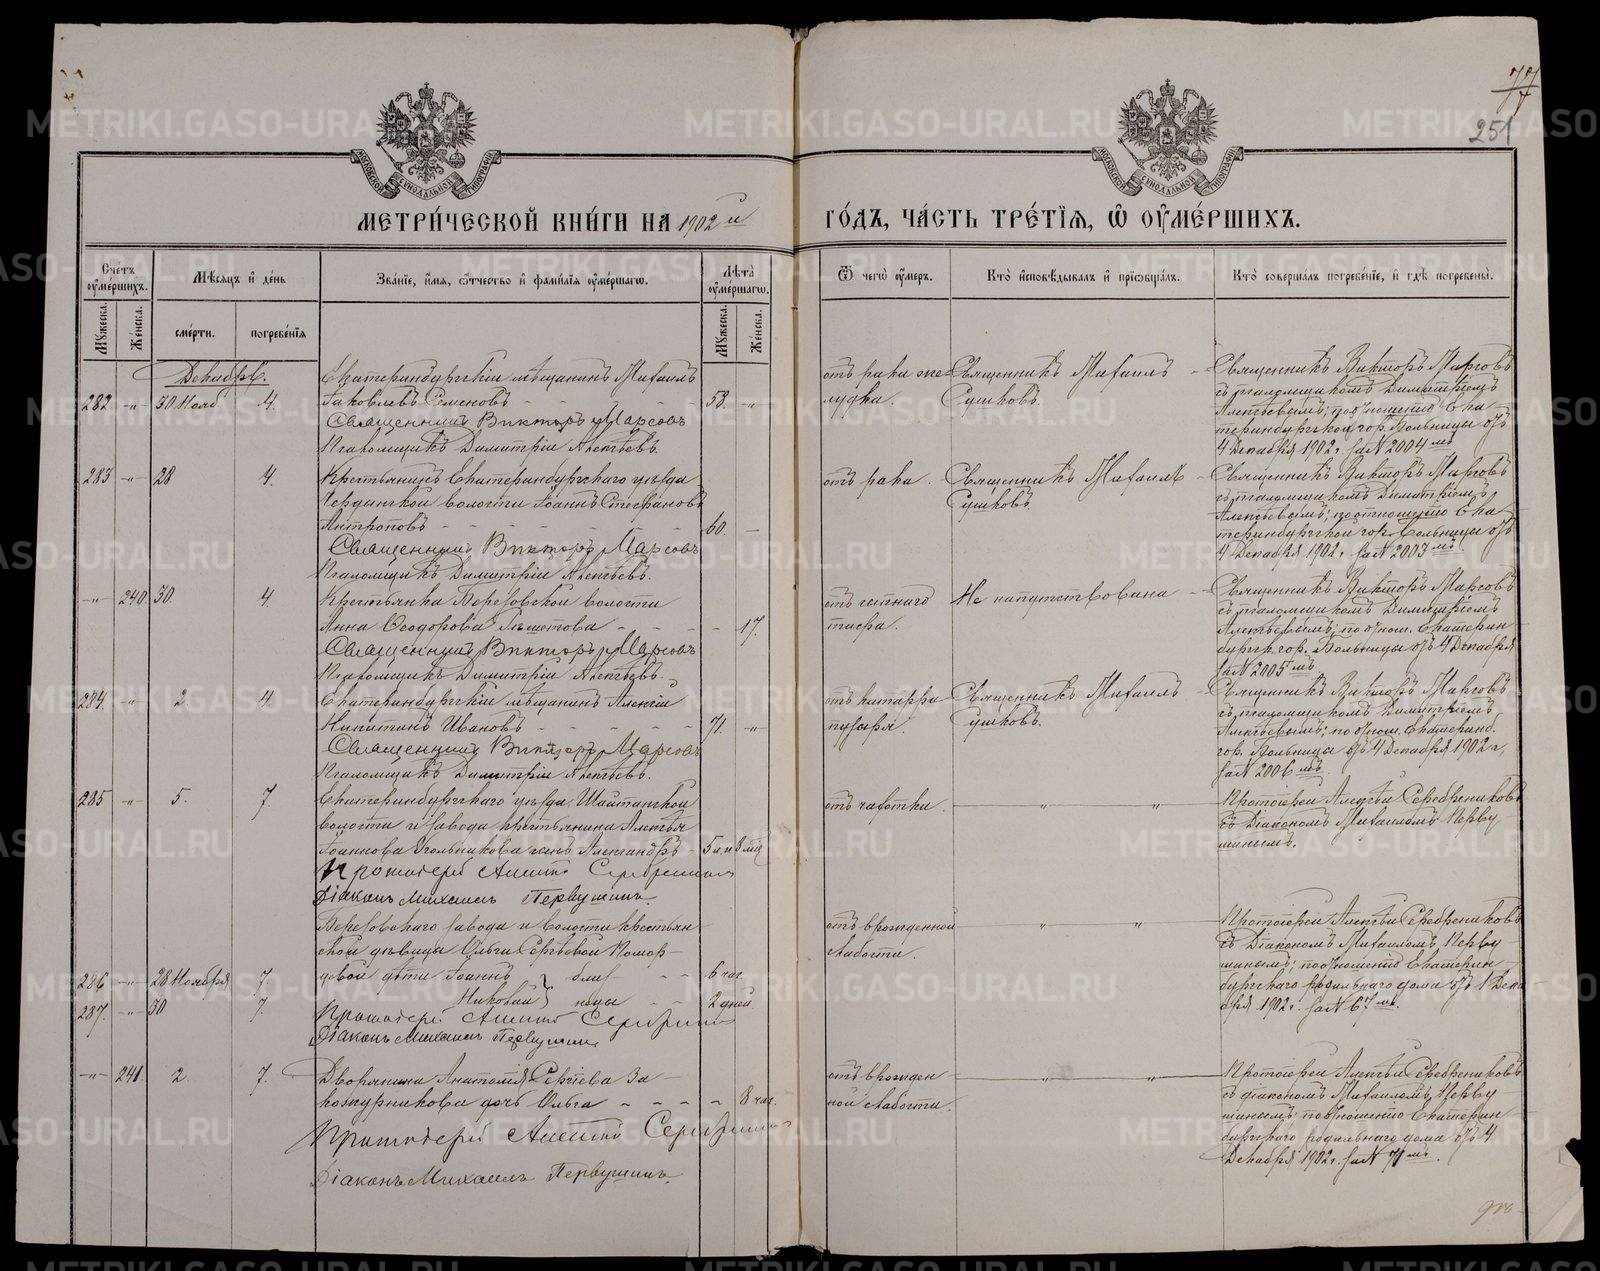 77
251
МЕТРИ́ЧЕСКОЙ КНИ́ГИ НА 1902 й
ГО́ДЪ, ЧА́СТЬ ТРЕ́ТІЯ, Ѡ ОУМЕ́РШИХЪ.
Сче́тъ оуме́ршихъ.
Му́жеска.
Же́нска.
Мѣ́сяцъ и де́нь
сме́рти.
погребе́нія
Зва́ніе, и́мя, о́тчество и фами́лія оуме́ршагѡ.
Лѣ́та оуме́ршагѡ.
Му́жеска.
Же́нска.
Ѿ чегѡ̀ оу́меръ.
Кто̀ исповѣ́дывалъ и пріѡбща́лъ.
Кто̀ соверша́лъ погребе́ніе, и гдѣ̀ погребены̀.
Декабрь.
282 -"- 30 Нояб. 4.
Екатеринбургскій мѣщанинъ Михаилъ
Іаковлевъ Семеновъ - - - 58. -"-
Священникъ Викторъ Марсовъ
Псаломщикъ Димитрій Алексѣевъ.
отъ рака же-
лудка.
Священникъ Михаилъ
Сушковъ.
Священникъ Викторъ Марсовъ
съ псаломщикомъ Димитріемъ
Алексѣевымъ; по отношенію Ека
теринбургской гор. больницы отъ
4 Декабря 1902 г. за N 2004 мъ
283 -"- 28 4.
Крестьянинъ Екатеринбургскаго уѣзда
волости Іоаннъ Стефановъ
Антроповъ - - - 60. -
Священникъ Викторъ Марсовъ
Псаломщикъ Димитрій Алексѣевъ.
отъ рака.
Священникъ Михаилъ
Сушковъ.
Священникъ Викторъ Марсовъ
съ псаломщикомъ Димитріемъ
Алексѣевымъ; по отношенію Ека
теринбургской гор. больницы отъ
4 Декабря 1902 г. за N 2003 мъ
-"- 240 30. 4.
Крестьянка Березовской волости
Анна Ѳеодорова - - - 17.
Священникъ Викторъ Марсовъ
Псаломщикъ Димитрій Алексѣевъ.
отъ сыпнаго
тифа.
Не напутствована
Священникъ Викторъ Марсовъ
съ псаломщикомъ Димитріемъ
Алексѣевымъ; по отнош. Екатерин
бургск. гор. больницы отъ 4 Декабря
за N 2005 мъ
284. " 2. 4.
Екатеринбургскій мѣщанинъ Алексій
Никитинъ Ивановъ - - - 71. -"-
Священникъ Викторъ Марсовъ
Псаломщикъ Димитрій Алексѣевъ.
отъ катарра
пузыря.
Священникъ Михаилъ
Сушковъ.
Священникъ Викторъ Марсовъ
съ псаломщикомъ Димитріемъ
Алексѣевымъ; по отнош. Екатеринб.
гор. больницы отъ 4 Декабря 1902 г,
за N 2006 мъ
285 -"- 5. 7.
Екатеринбургскаго уѣзда Шайтанской
волости и завода крестьянина Алексѣя
Іоаннова сынъ Александръ - 5 л. и 8 мѣс.
Протоіерей Алексій Серебрениковъ
Діаконъ Михаилъ Первушинъ.
отъ чахотки.
" "
Протоіерей Алексѣй Серебрениковъ
съ Діакономъ Михаиломъ Перву
шинымъ.
Березовскаго завода и волости крестьян
ской дѣвицы Ольги Сергѣевой
дѣти Іоаннъ близ- - 6 час.
Николай нецы - 2 дней
286 -"- 28 Ноября 7.
287. -"- 30 7.
Протоіерей Алексій Серебрениковъ
Діаконъ Михаилъ Первушинъ
отъ врожденной
слабости.
" "
Протоіерей Алексѣй Серебрениковъ
съ Діакономъ Михаиломъ Перву-
шинымъ; по отношенію Екатерин-
бургскаго родильнаго дома отъ 1 Дека
бря 1902 г. за N 67 мъ.
-"- 241. 2. 7.
Дворянина Анатолія Сергіева За-
кожурникова дочь Ольга - - - 8 час.
Протоіерей Алексій Серебрениковъ
Діаконъ Михаилъ Первушинъ.
отъ врожден-
ной слабости.
" "
Протоіерей Алексѣй Серебрениковъ
съ діакономъ Михаиломъ Перву
шинымъ по отношенію Екатерин
бургскаго родильнаго дома отъ 4
Декабря 1902 г. за N 71 мъ.